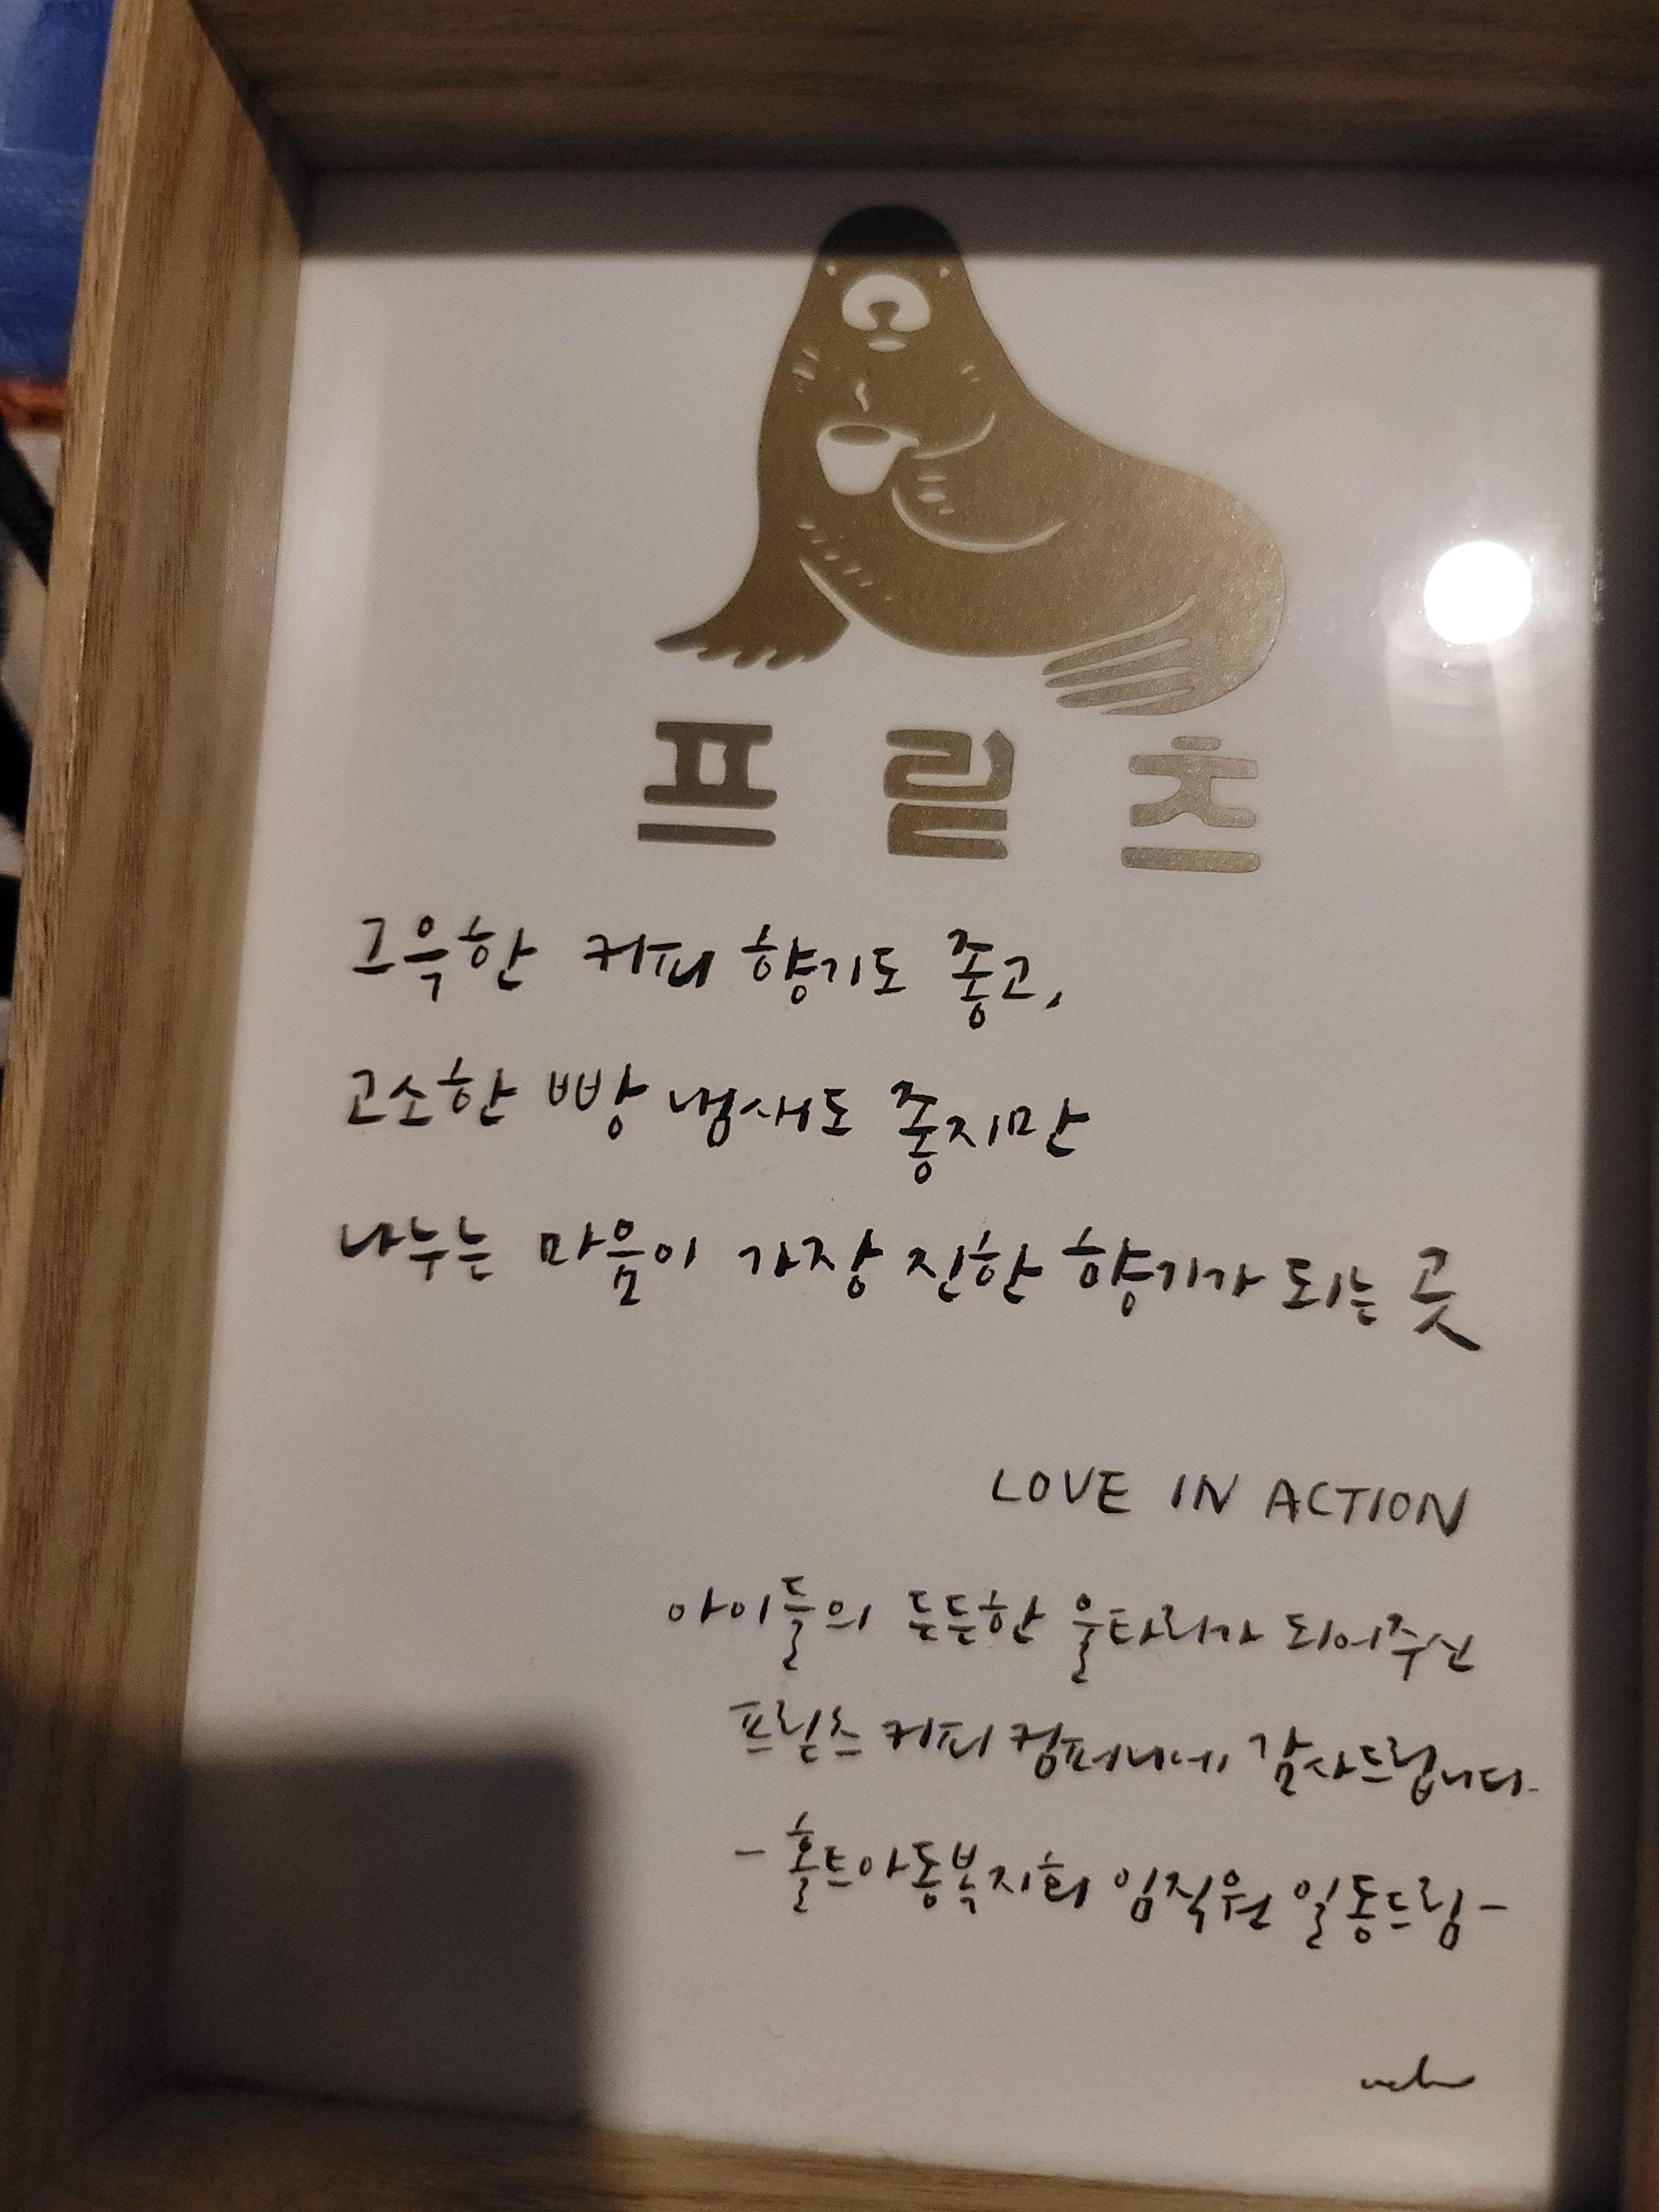 프릳츠
그윽한 커피 향기도 좋고,
고소한 빵 냄새도 좋지만
나누는 마음이 가장 진한 향기가 되는 곳
LOVE IN ACTION
아이들의 든든한 울타리가 되어주신
프릳츠 커피 컴퍼니에 감사드립니다.
- 홀트아동복지회 임직원 일동드림 -